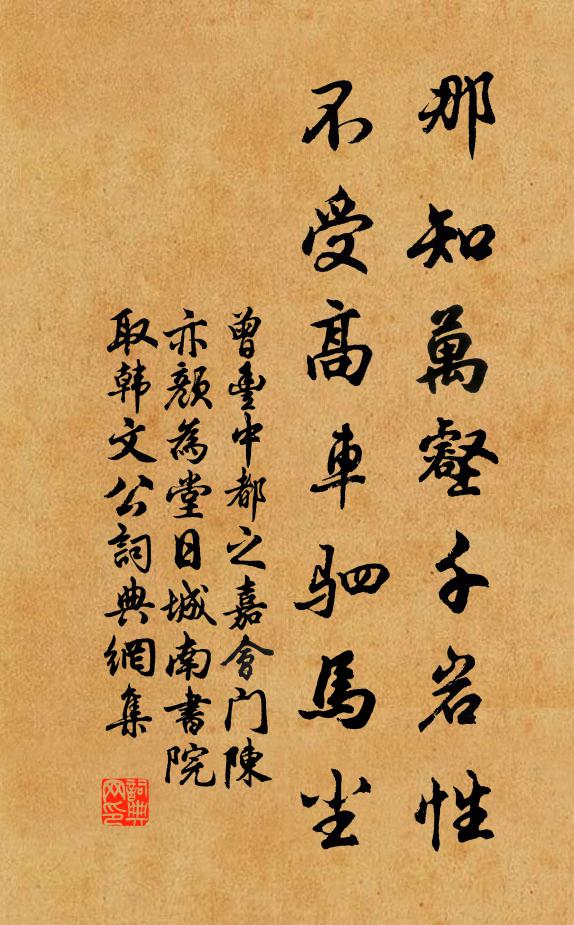 那知萬壑千岩性
不受高車駟馬塵
曾豊中都之嘉會門陳
亦顏為堂日城南書院
取韩文公詞典網集
詞典網印